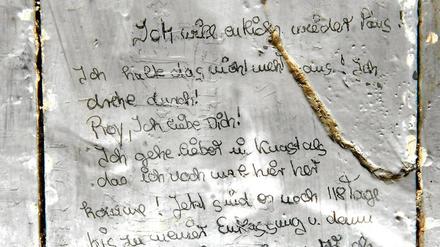 Ich will endlich wieder raus!
Ich halte das nicht mehr aus! Ich
drehe durch!
Roy, Ich liebe Dich!
Ich gehe lieber in Knast als
das ich noch mal hier her
komme! Jetzt sind es noch 118 Tage
bis zu meiner Entlassung u. dann